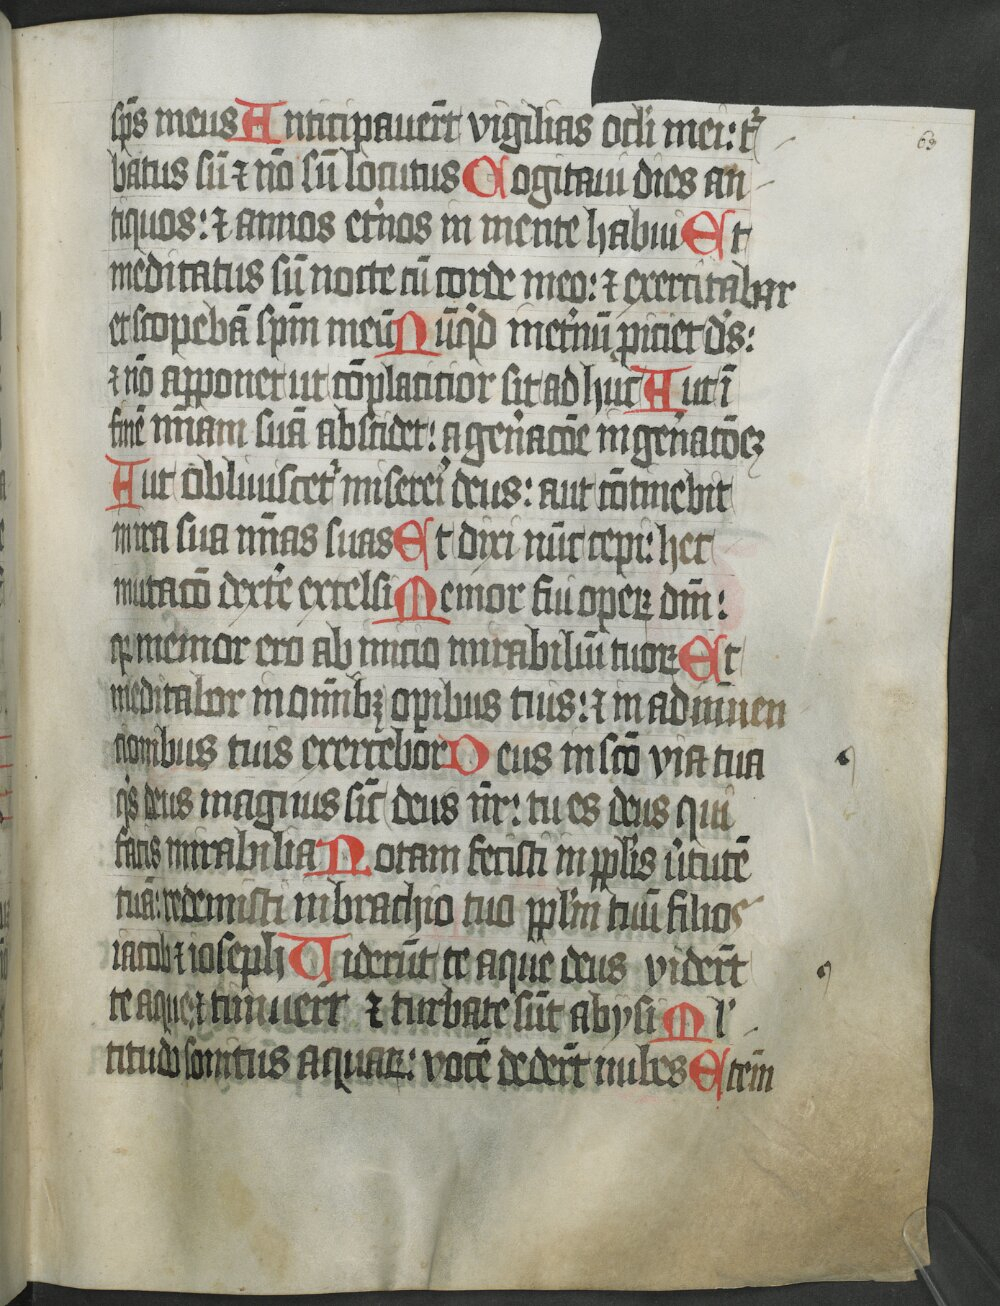 sp̄s meus Anticipauer̄t vigilias ocl̄i mei: t̉
batus sū ⁊ nō sū locutus Cogitaui dies an
tiquos: ⁊ annos et̉nos in mente habui Et
meditatus sū nocte cū corde meo: ⁊ exercitabar
et scopebā sp̄m meū Nūq̄d in et̉nū ꝓiciet d̄s:
⁊ nō apponet ut cōplacitior sit adhuc Aut ī
finē mīam suā abscidet: a gen̉acōe in gen̉acōeꝫ
Aut obliuiscet̉ misereỉ deus: aut cōtinebit
in ira sua mīas suas Et dixi nūc cepi: hec
mutacō dext̉e excelsi Memor fui operꝝ dn̄i:
qꝛ memor ero ab inicio mirabiliū tuoꝝ Et
meditabor in om̄ibꝫ oꝑibus tuis: ⁊ in adinuen
cionibus tuis exercebor Deus in sc̄o via tua
q̄s deus magnus sic̄ deus nr̄: tu es deus qui
facis mirabilia Notam fecisti in ppl̄is v̉tutē
tuā: redemisti in brachio tuo ppl̄m tuū filios
iacob ⁊ ioseph Viderūt te aque deus vider̄t
te aque: ⁊ timuer̄t ⁊ turbate sūt abysi Ml̓
titudo sonitus aquaꝝ: vocē deder̄t nubes Eteīn
69